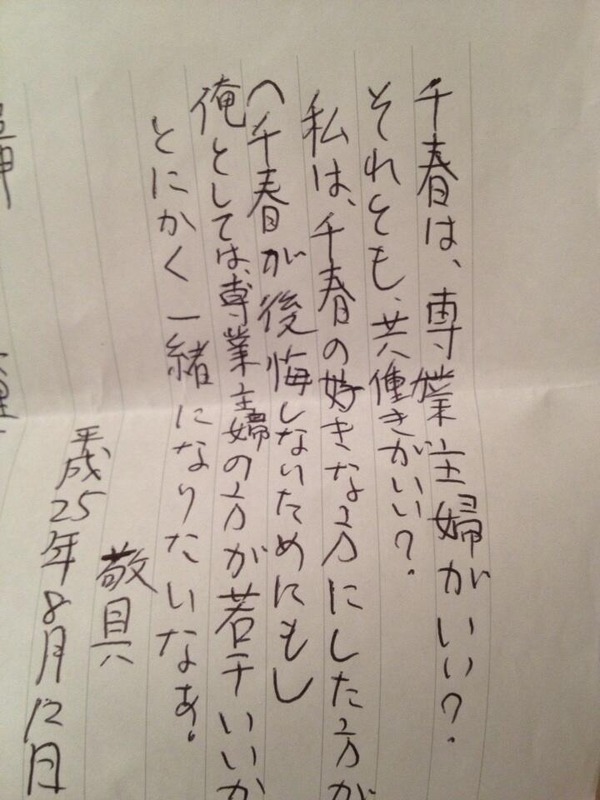 千春は、専業主婦がいい?
それとも、共働きがいい?
私は、千春の好きな方にした方が
(千春が後悔しないためにもし
俺としては、専業主婦の方が若干いいか
とにかく一緒になりたいなぁ。
敬具
平成25年8月12日